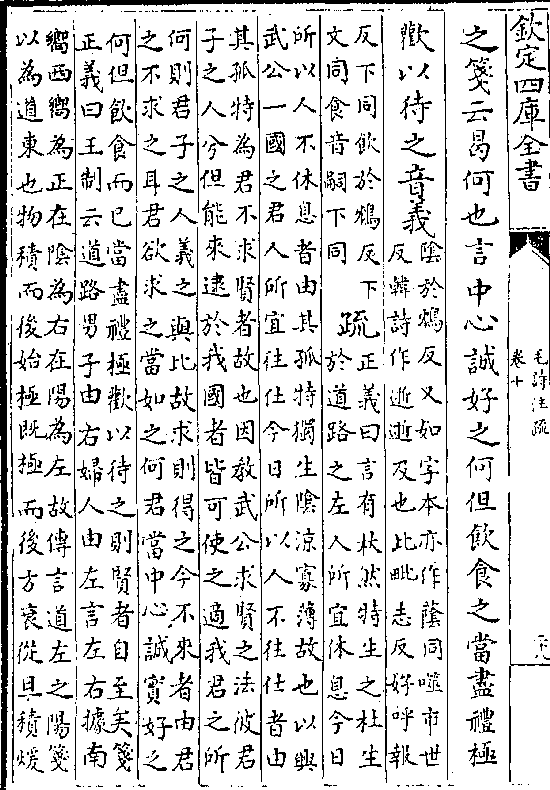 欽定四庫全書
毛詩注疏
卷十
之箋云曷何也言中心誠好之何但飲食之當盡禮極
歡以待之音義
陰於鴆反又如字本亦作蔭同噬市世
反韓詩作逝逝及也比毗志反好呼報
反下同飲於鴆反下
文同食音嗣下同
疏
正義曰言有杕然特生之杜生
於道路之左人所宜休息今日
所以人不休息者由其孤特獨生陰涼寡薄故也以興
武公一國之君人所宜往仕今日所以人不往仕者由
其孤特為君不求賢者故也因教武公求賢之法彼君
子之人兮但能來逮於我國者皆可使之適我君之所
何則君子之人義之與比故求則得之今不來者由君
之不求之耳君欲求之當如之何君當中心誠實好之
何但飲食而已當盡禮極歡以待之則賢者自至矣箋
正義曰王制云道路男子由右婦人由左言左右據南
嚮西嚮為正在陰為右在陽為左故傳言道左之陽箋
以為道東也物積而後始極既極而後方衰從旦積煖